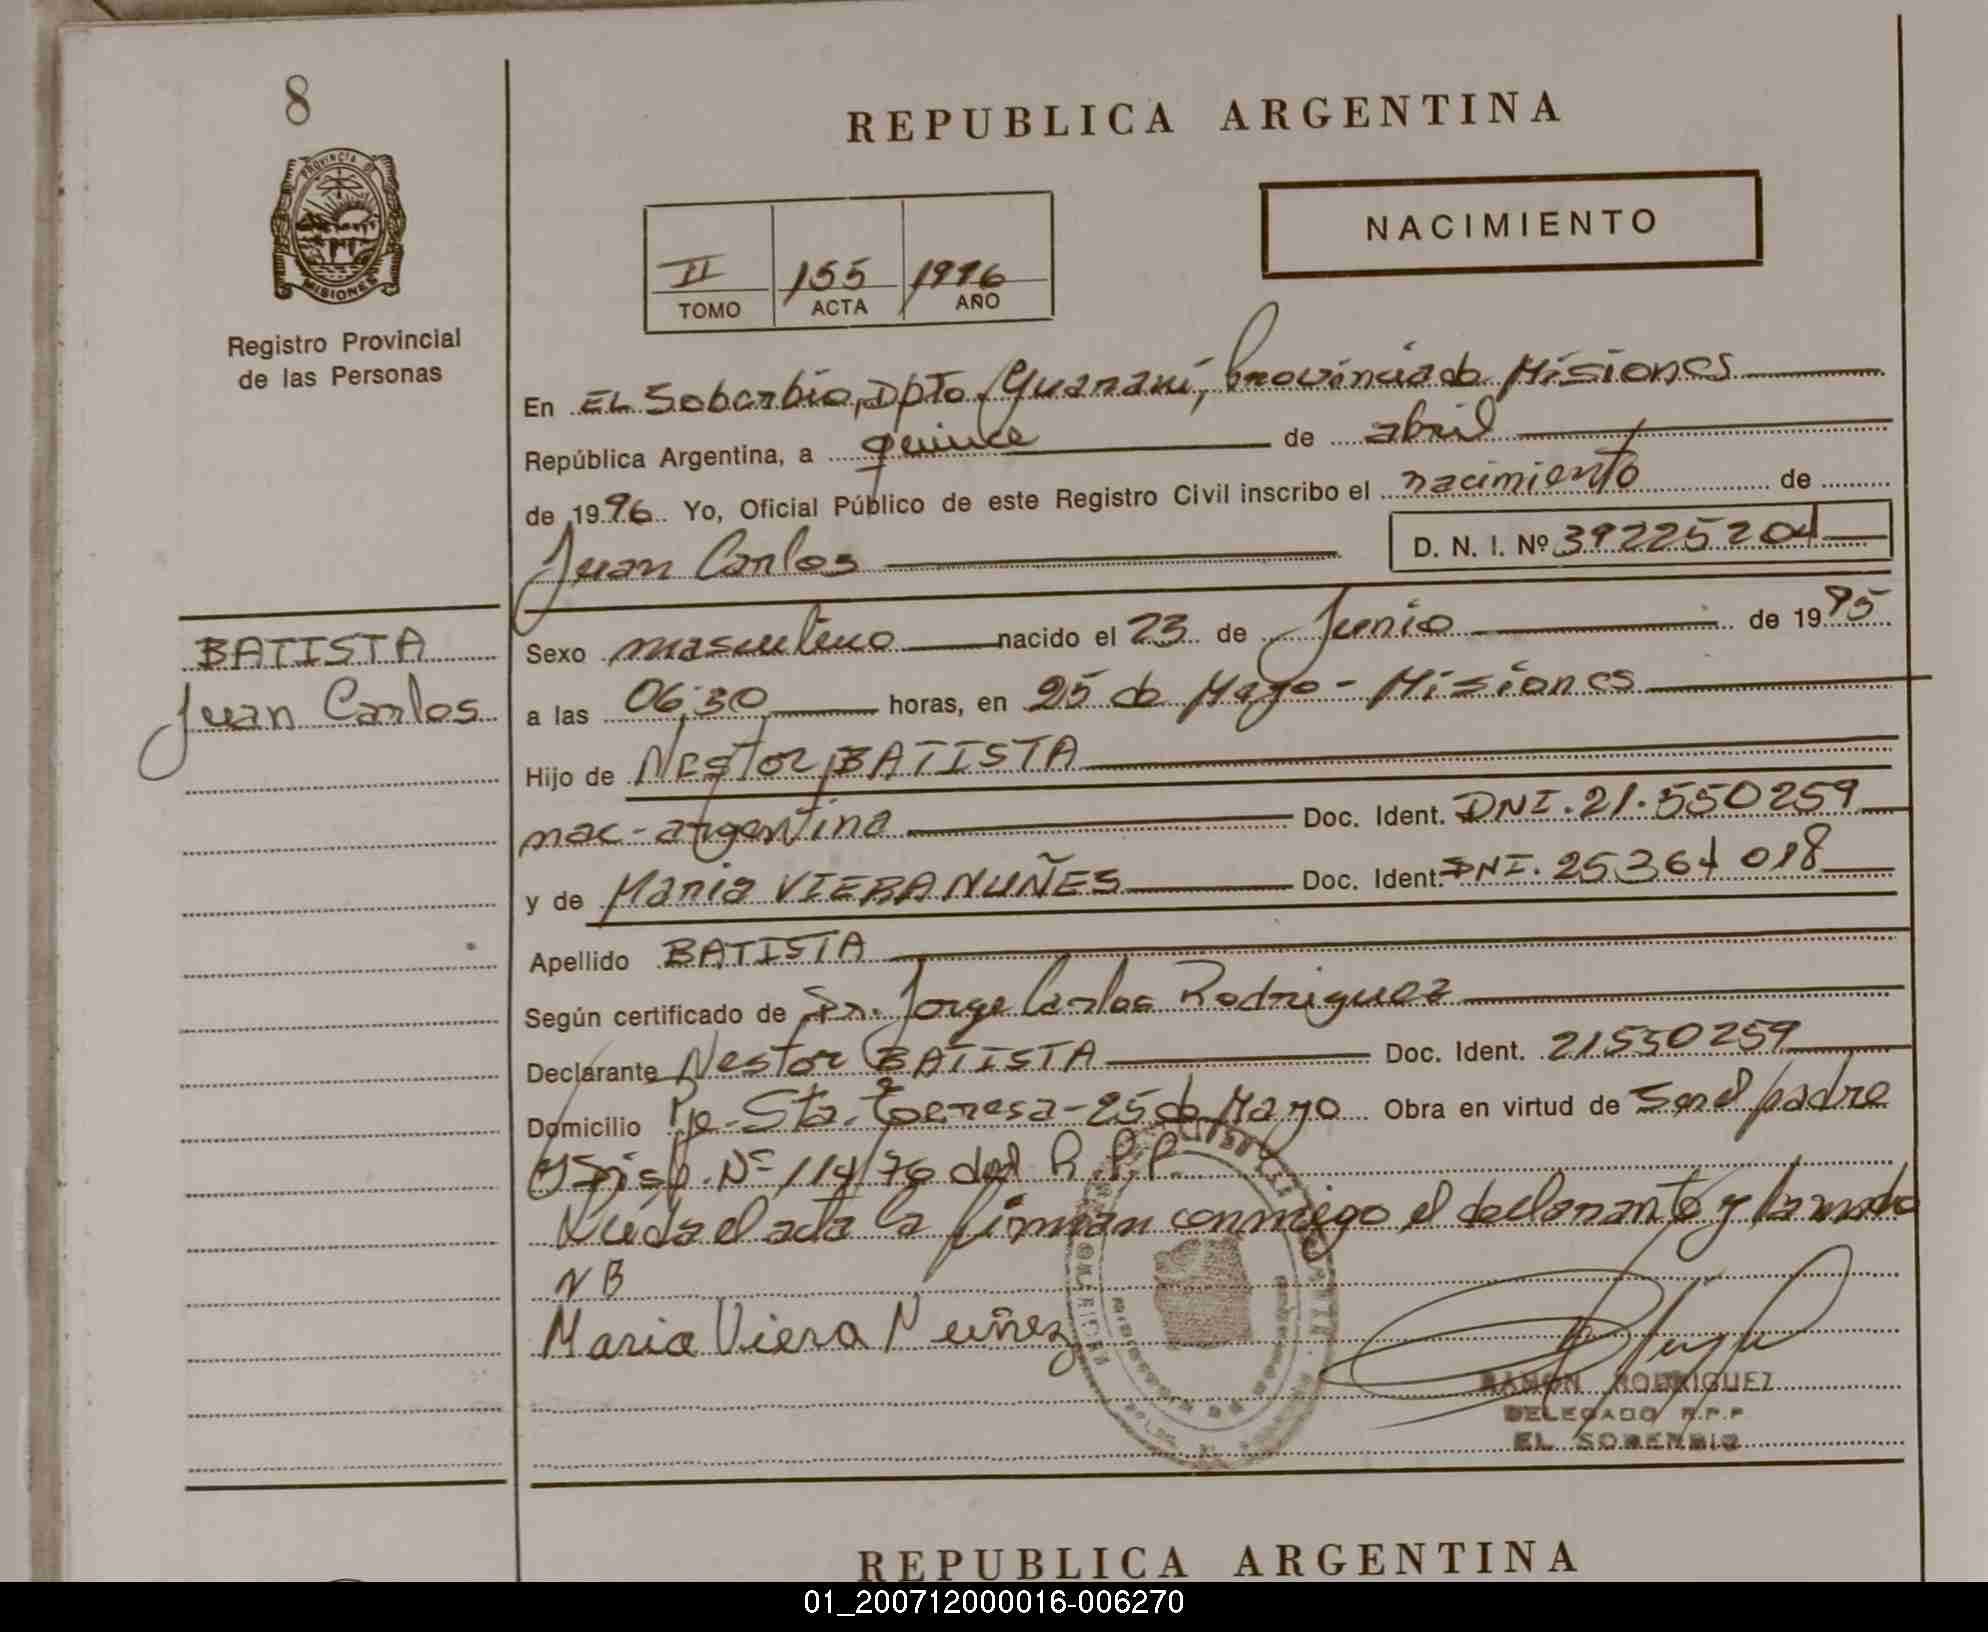 8
REPUBLICA ARGENTINA
PROVINCIA DE
MISIONES
NACIMIENTO
II 155 1996
TOMO ACTA AÑO
Registro Provincial
de las Personas
En EL Soberbio, Dpto. Guaraní, Provincia de Misiones
República Argentina, a quince de abril
de 1996. Yo, Oficial Público de este Registro Civil inscribo el nacimiento de
Juan Carlos D. N. I. Nº 39225204
BATISTA
Juan Carlos
Sexo masculino nacido el 23 de Junio de 1995
a las 06,30 horas, en 25 de Mayo - Misiones
Hijo de Nestor BATISTA
nac- argentina Doc. Ident. DNI. 21.550259
y de Maria VIERA NUÑES Doc. Ident. DNI. 25364018
Apellido BATISTA
Según certificado de Dr. Jorge Carlos Rodriguez
Declarante Nestor BATISTA Doc. Ident. 21550259
Domicilio Pje. Sta. Teresa - 25 de Mayo Obra en virtud de Ser el padre
y Disp. Nº 114/76 del R.P.P.
Leida el acta la firman conmigo el declarante y la madre
NB
Maria Viera Nuñez
RAMON RODRIGUEZ
DELEGADO R.P.P
EL SOBERBIO
REPUBLICA ARGENTINA
01_200712000016-006270